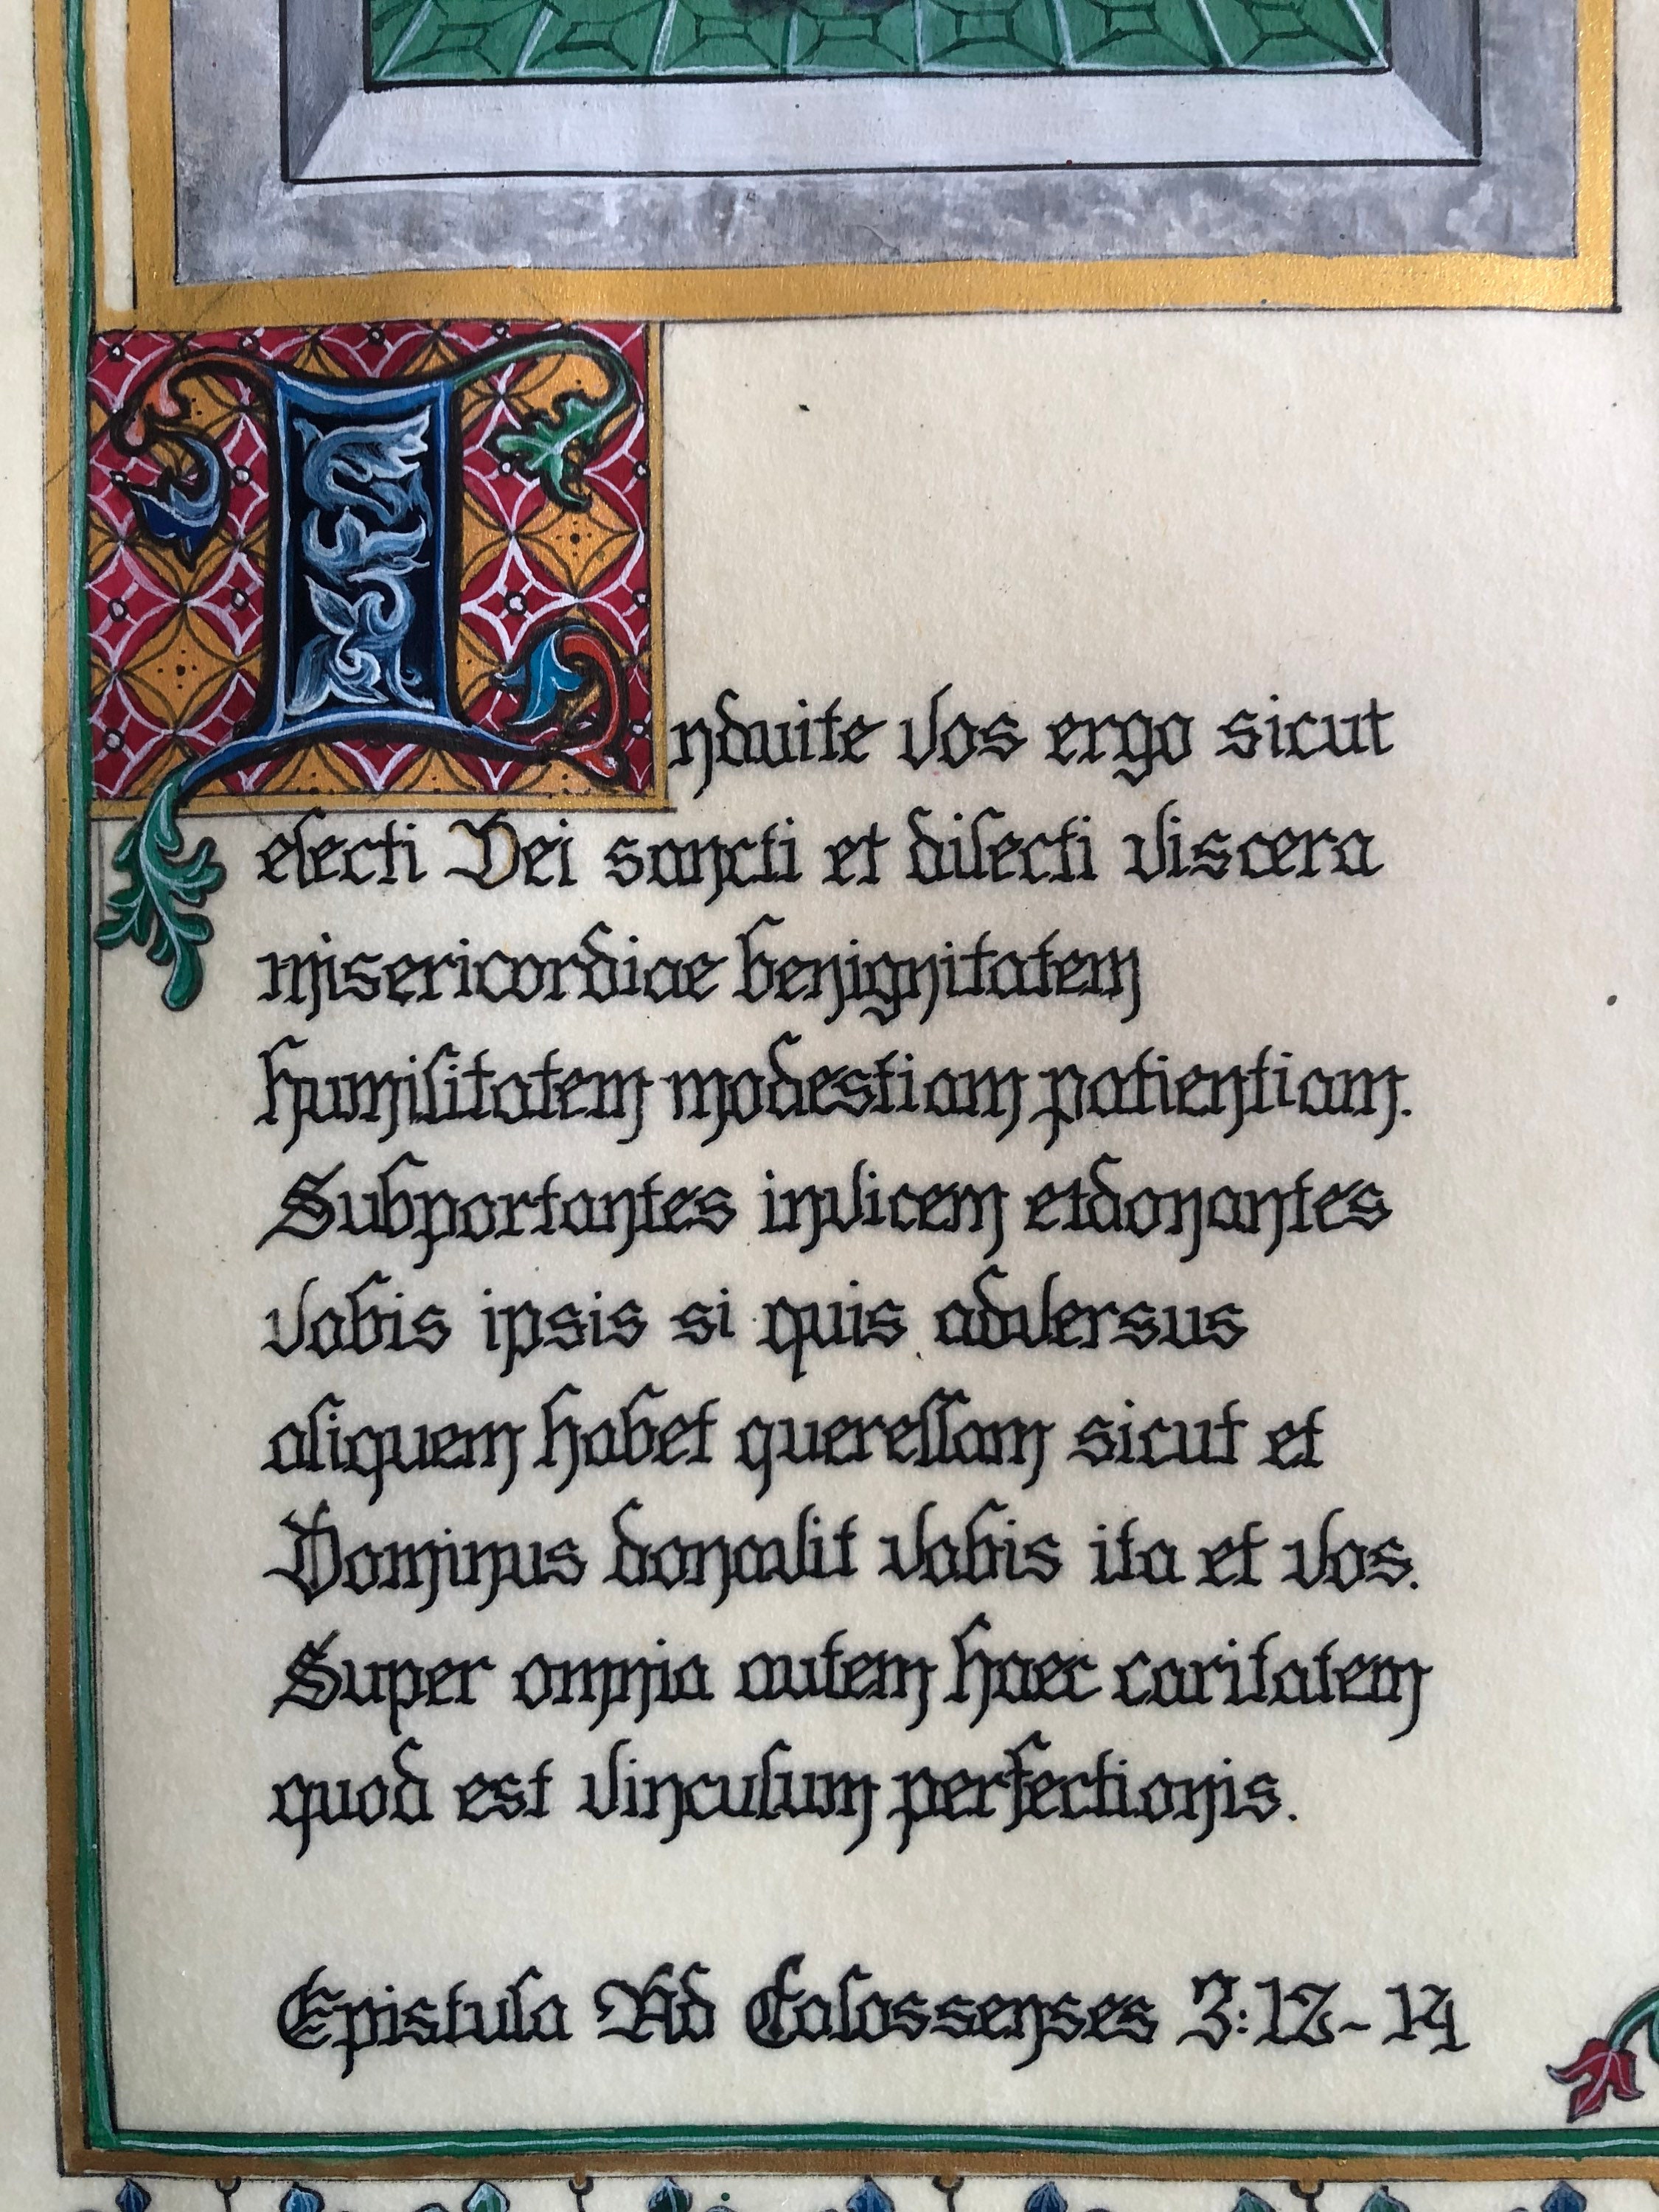 Induite vos ergo sicut
electi Dei sancti et dilecti viscera
misericordiae benignitatem
humilitatem modestiam patientiam.
Subportantes invicem etdonantes
vobis ipsis si quis adversus
aliquem habet querellam sicut et
Dominus donavit vobis ita et vos.
Super omnia autem haec caritatem
quod est vinculum perfectionis.
Epistula Ad Colossenses 3:12-14